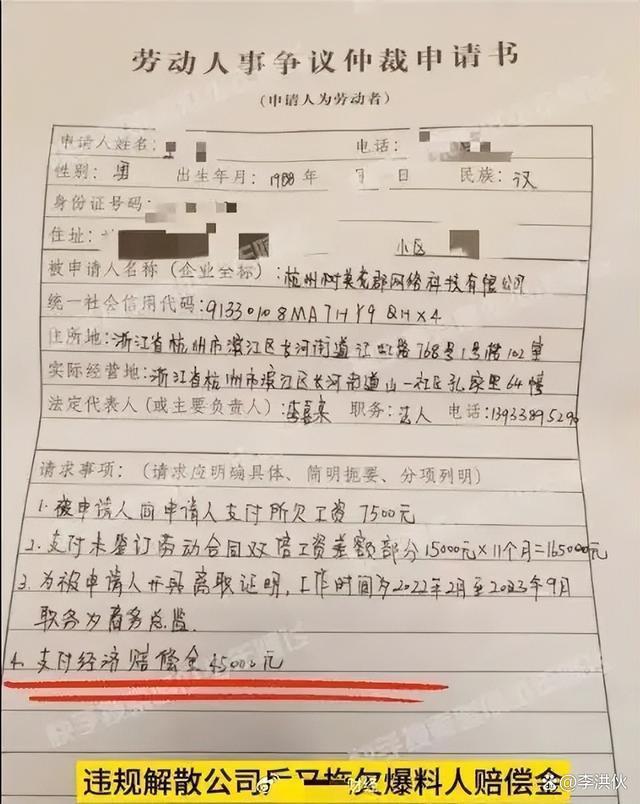 劳动人事争议仲裁申请书
(申请人为劳动者)
申请人姓名: 电话:
性别: 男 出生年月: 1988年 月 日 民族: 汉
身份证号码:
住址: 小区
被申请人名称 (企业全称) : 杭州树英老郡网络科技有限公司
统一社会信用代码: 91330108MA7HY9QHX4
住所地: 浙江省杭州市滨江区长河街道江虹路768号1号楼102室
实际经营地: 浙江省杭州市滨江区长河街道山一社区孔家里64幢
法定代表人 (或主要负责人) : 李喜来 职务: 法人 电话: 1393389529
请求事项: (请求应明确具体、简明扼要、分项列明)
1. 被申请人向申请人支付所欠工资 7500元
2. 支付未签订劳动合同双倍工资差额部分15000元×11个月=165000元
3. 为被申请人开具离职证明, 工作时间为2022年2月至2023年9月
职务为商务总监.
4. 支付经济赔偿金45000元
违规解散公司后又拖欠爆料人赔偿金
财经
@李洪伙